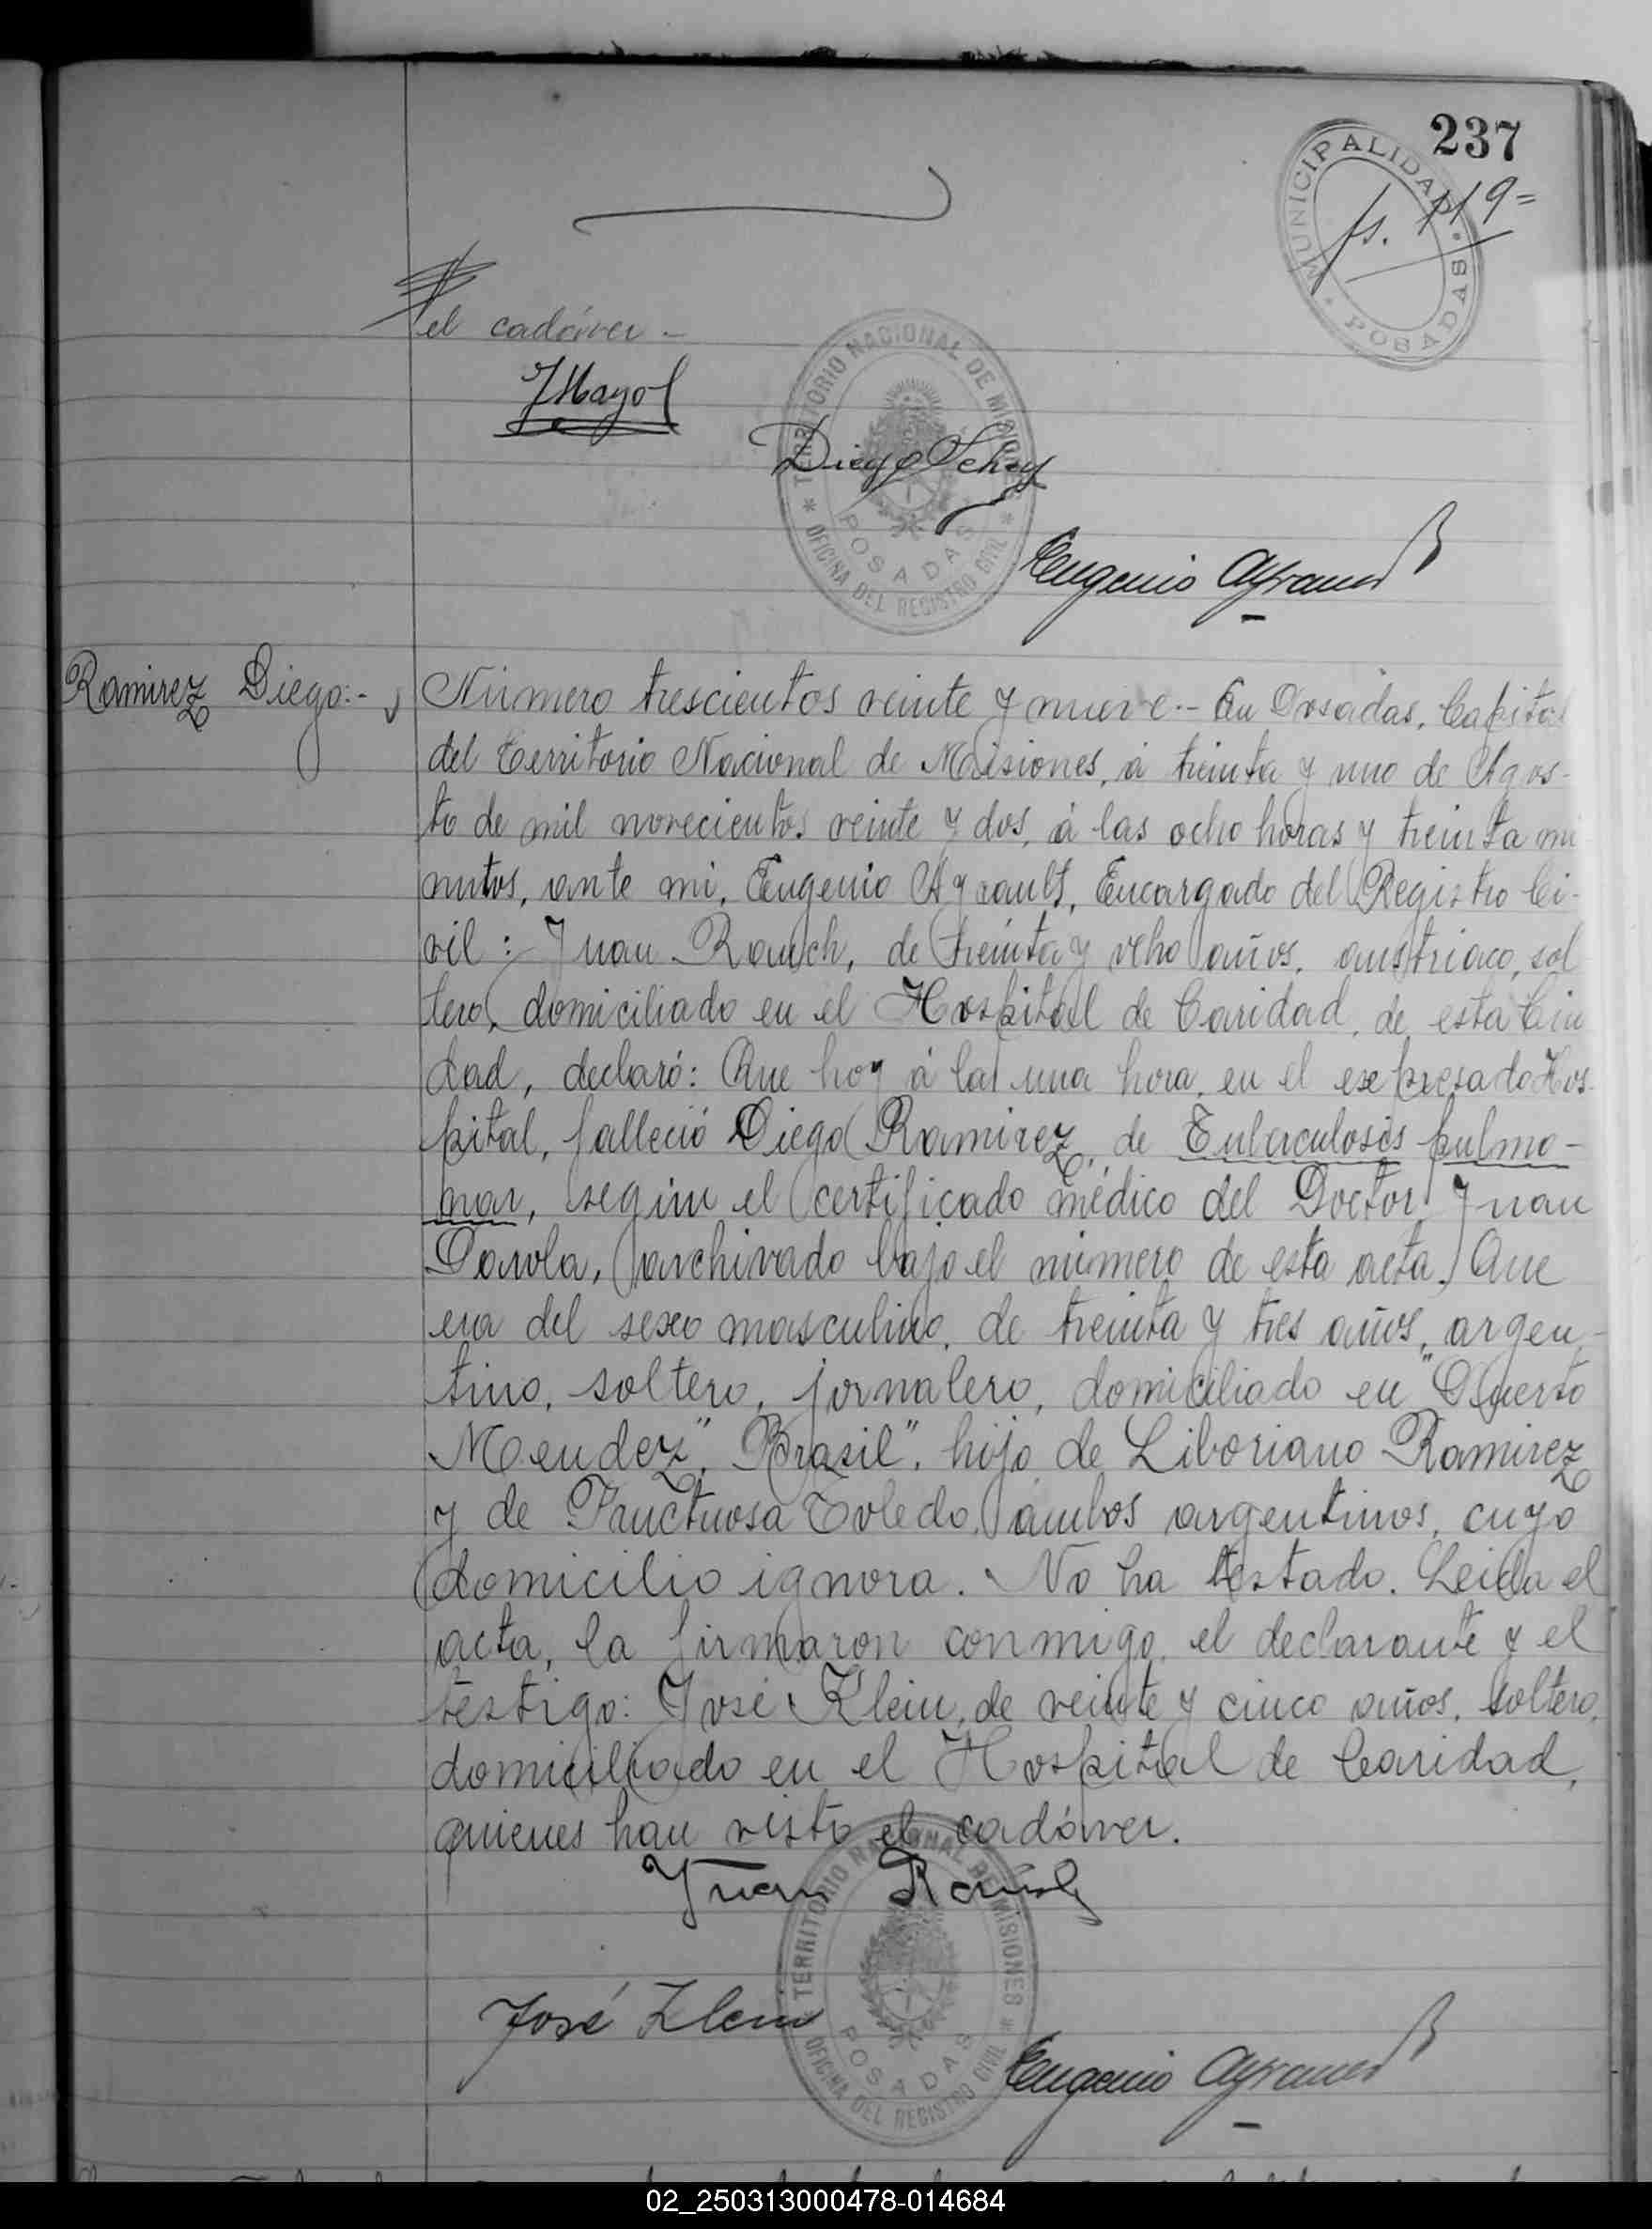 237
MUNICIPALIDAD POSADAS
fs. 119=
el cadáver -
JMayol
TERRITORIO NACIONAL DE MISIONES
OFICINA DEL REGISTRO CIVIL
POSADAS
Diego
Eugenio Ayrault
Ramirez Diego:-
Número trescientos veinte y nueve.- En Posadas, Capital
del Territorio Nacional de Misiones, á treinta y uno de Agos-
to de mil novecientos veinte y dos, á las ocho horas y treinta mi
nutos, ante mi, Eugenio Ayrault, Encargado del Registro Ci-
vil: Juan Rauch, de treinta y ocho años, austriaco, sol
tero, domiciliado en el Hospital de Caridad, de esta Ciu
dad, declaró: Que hoy á la una hora, en el expresado Hos-
pital, falleció Diego Ramirez, de Tuberculosis pulmo-
nar, segun el certificado médico del Doctor Juan
Darola, archivado bajo el número de esta acta. Que
era del sexo masculino, de treinta y tres años, argen-
tino, soltero, jornalero, domiciliado en "Puerto
Mendez", Brasil", hijo de Liboriano Ramirez
y de Fructuosa Toledo, ámbos argentinos, cuyo
domicilio ignora. No ha testado. Leida el
acta, la firmaron conmigo, el declarante y el
testigo: José Klein, de veinte y cinco años, soltero,
domiciliado en el Hospital de Caridad,
quienes han visto el cadáver.
Juan Rauch
TERRITORIO NACIONAL DE MISIONES
OFICINA DEL REGISTRO CIVIL
POSADAS
José Klein
Eugenio Ayrault
02_250313000478-014684